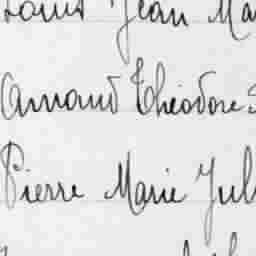 Louis Jean Ma
Arnaud Théodore
Pierre Marie Jul